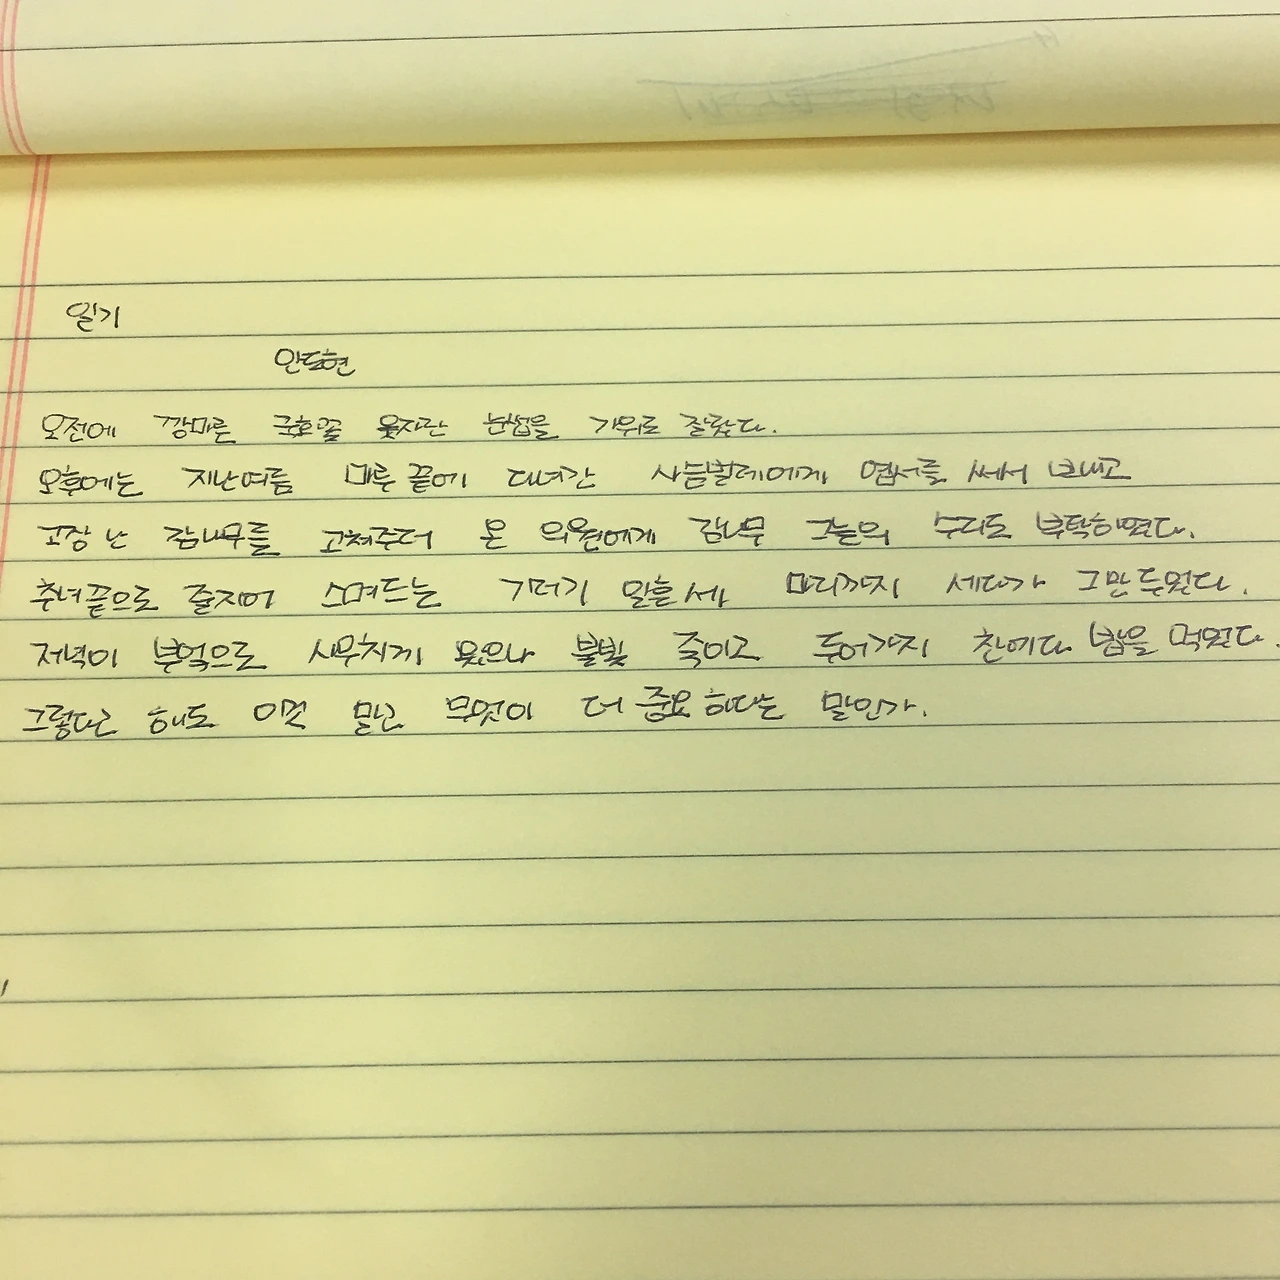 일기
안도현
오전에 깡마른 국화꽃 웃자란 눈썹을 가위로 잘랐다.
오후에는 지난여름 마루 끝에 다녀간 사슴벌레에게 엽서를 써서 보내고
고장 난 감나무를 고쳐주러 온 의원에게 감나무 그늘의 수리도 부탁하였다.
추녀끝으로 줄지어 스며드는 기러기 일흔세 마리까지 세다가 그만두었다.
저녁이 부엌으로 사무치게 왔으나 불빛 죽이고 두어가지 찬에다 밥을 먹었다.
그렇다고 해도 이것 말고 무엇이 더 중요하다는 말인가.